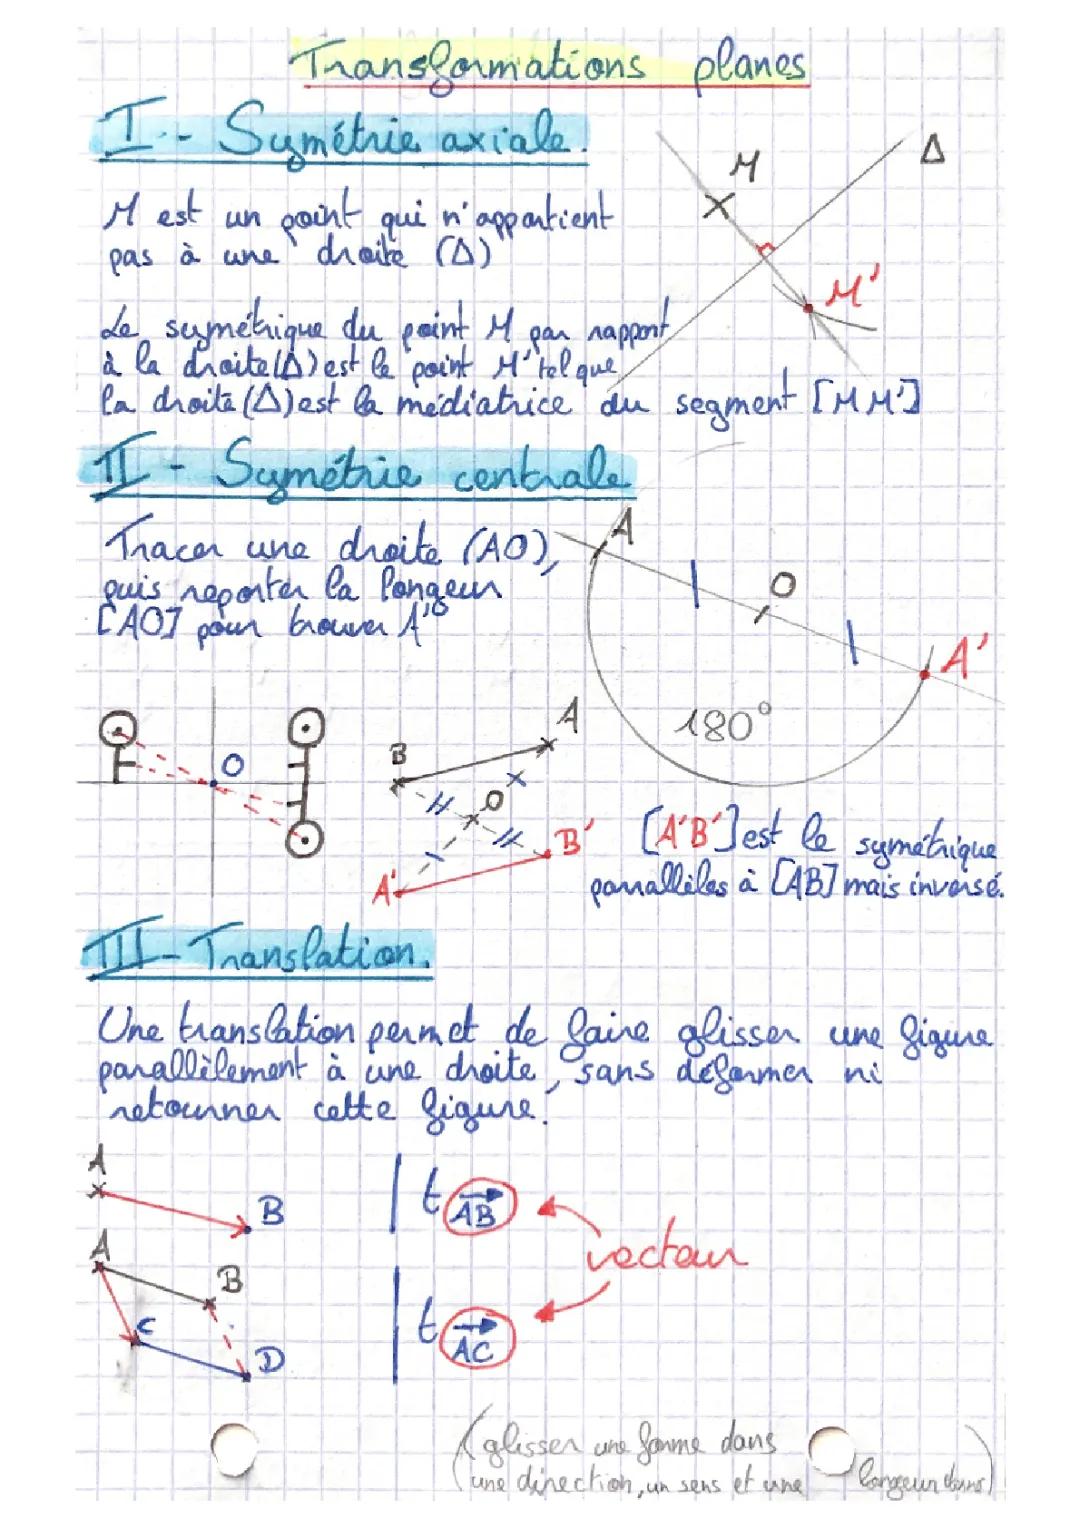 Transformations planes
I - Symétrie axiale.
M
Δ
M est un point qui n'appartient
pas à une droite (Δ)
M'
Le symétrique du point M par rapport
à la droite (Δ) est le point M' tel que
la droite (Δ) est la médiatrice du segment [MM']
II - Symétrie centrale
A
Tracer une droite (AO),
puis reporter la longeur
[AO] pour trouver A'
O
A'
180°
O
B
A
O
B'
A'
[A'B'] est le symétrique
parrallèles à [AB] mais inversé.
III - Translation.
Une translation permet de faire glisser une figure
parallèlement à une droite, sans déformer ni
retourner cette figure.
A
B
t AB
vecteur
A
B
C
D
t AC
(glisser une forme dans
une direction, un sens et une longeur)